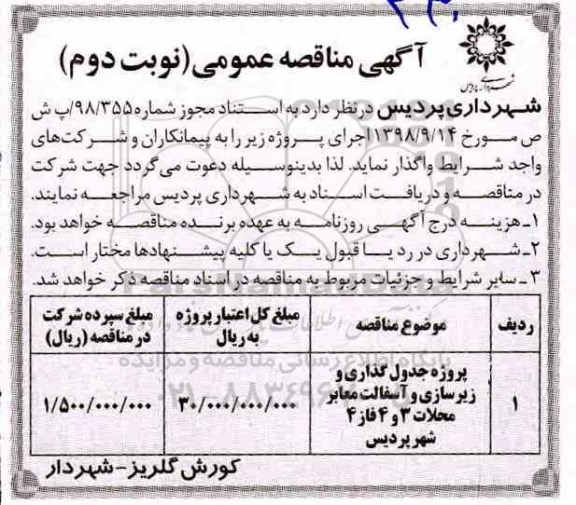 آگهی مناقصه عمومی (نوبت دوم)
شهرداری پردیس در نظر دارد به استناد مجوز شماره ۹۸/۳۵۵/پ ش
ص مورخ ۱۳۹۸/۹/۱۴ اجرای پروژه زیر را به پیمانکاران و شرکت‌های
واجد شرایط واگذار نماید. لذا بدینوسیله دعوت می‌گردد جهت شرکت
در مناقصه و دریافت اسناد به شهرداری پردیس مراجعه نمایند.
۱ـ هزینه درج آگهی روزنامه به عهده برنده مناقصه خواهد بود.
۲ـ شهرداری در رد یا قبول یک یا کلیه پیشنهادها مختار است.
۳ـ سایر شرایط و جزئیات مربوط به مناقصه در اسناد مناقصه ذکر خواهد شد.
ردیف موضوع مناقصه مبلغ کل اعتبار پروژه به ریال مبلغ سپرده شرکت در مناقصه (ریال)
۱ پروژه جدول گذاری و
زیرسازی و آسفالت معابر
محلات ۳ و ۴ فاز ۴
شهر پردیس
۳۰/۰۰۰/۰۰۰/۰۰۰ ۱/۵۰۰/۰۰۰/۰۰۰
کورش گلریز - شهردار
پایگاه اطلاع رسانی مناقصه و مزایده